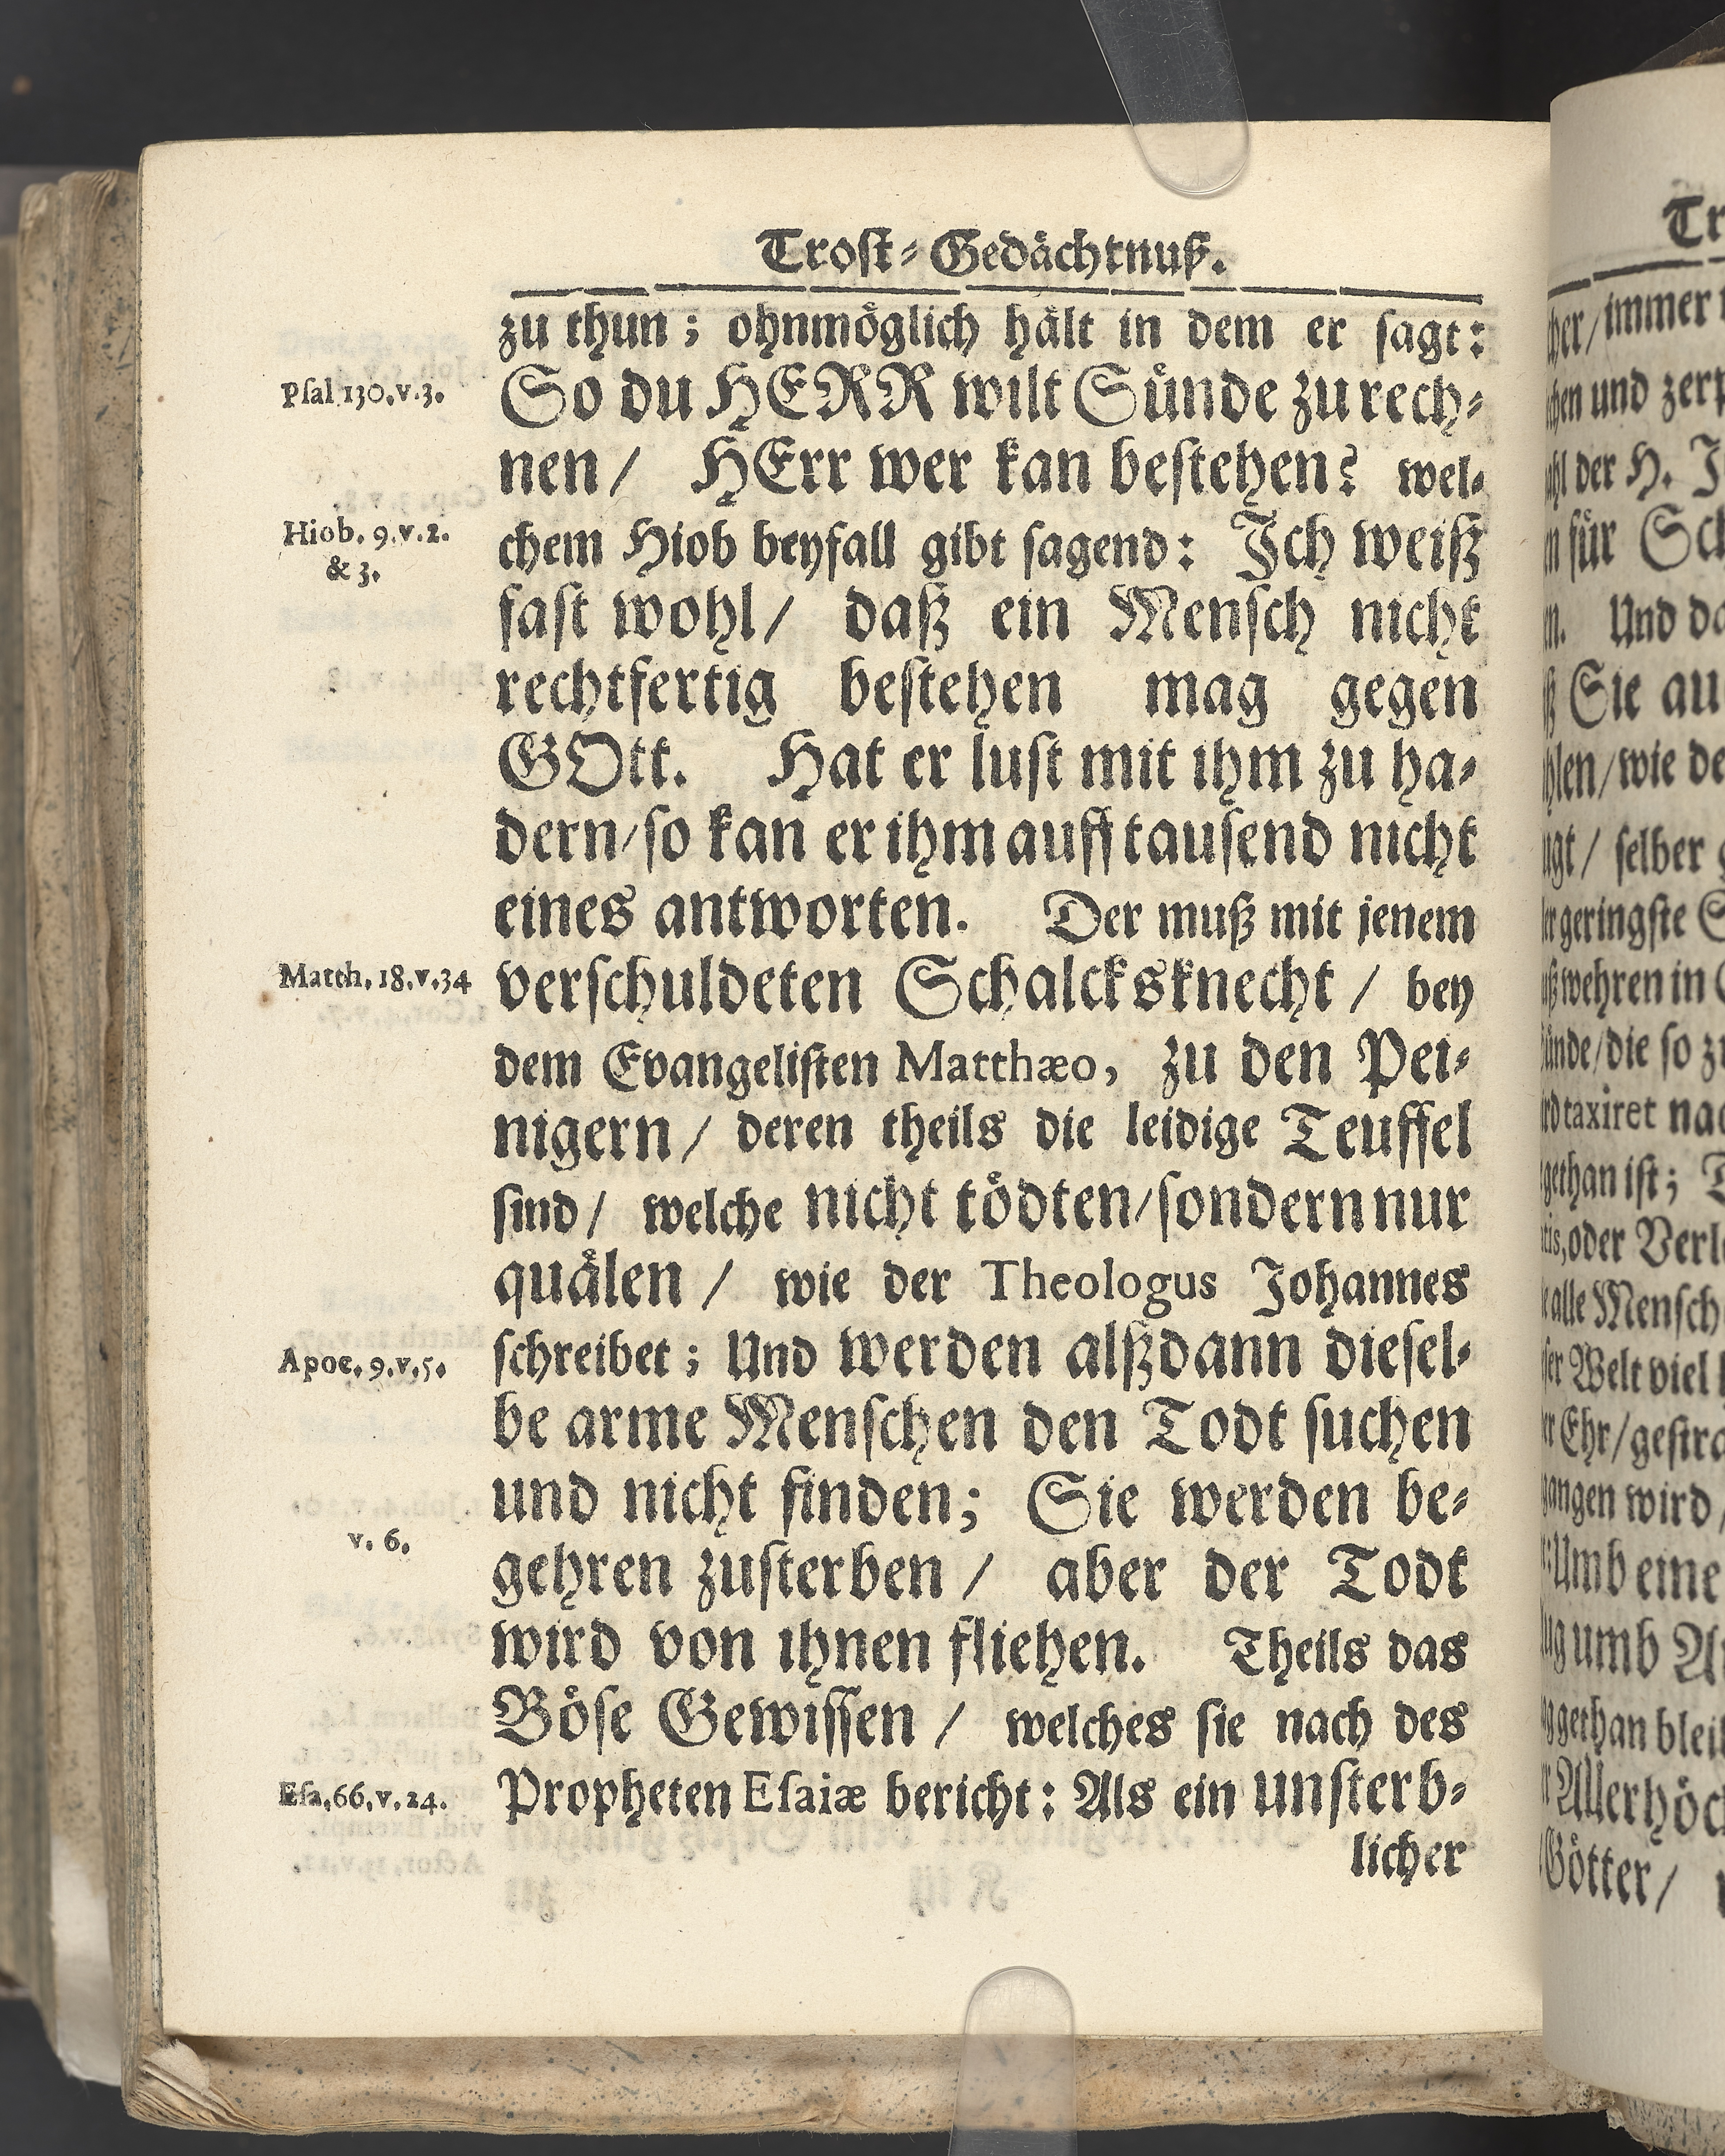 Trost-Gedächtnuß.
zu thun; ohnmöglich hält in dem er sagt:
Psal 130.v.3.
So du HERR wilt Sünde zu rech-
nen/ HErr wer kan bestehen? wel-
Hiob. 9.v.2.
& 3.
chem Hiob beyfall gibt sagend: Ich weiß
fast wohl/ daß ein Mensch nicht
rechtfertig bestehen mag gegen
GOtt. Hat er lust mit ihm zu ha-
dern/so kan er ihm auff tausend nicht
eines antworten. Der muß mit jenem
Matth. 18.v.34
verschuldeten Schalcksknecht / bey
dem Evangelisten Matthæo, zu den Pei-
nigern/ deren theils die leidige Teuffel
sind/ welche nicht tödten/sondern nur
quälen / wie der Theologus Johannes
Apoc. 9.v.5.
schreibet; Und werden alßdann diesel-
be arme Menschen den Todt suchen
und nicht finden; Sie werden be-
v. 6.
gehren zusterben / aber der Todt
wird von ihnen fliehen. Theils das
Böse Gewissen / welches sie nach des
Esa.66.v.24.
Propheten Esaiæ bericht: Als ein unsterb-
licher
Tr
immer
und zerp
der H. J
für Sch
Und da
Sie au
wie de
selber
geringste
wehren in
die so zu
taxiret nac
gethan ist;
oder Verl
alle Mensch
Welt viel
Ehr/gestra
gangen wird
Umb eine
umb
gethan bleib
Allerhöch
Götter/